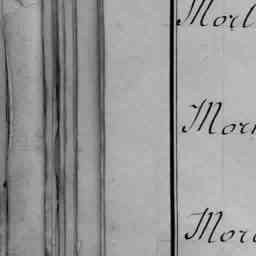 Morl
Morn
Mor